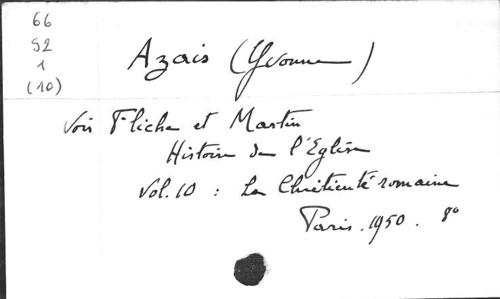 66
S2
1
(10)
Azais (Yvonne)
Voir Fliche et Martin
Histoire de l'Eglise
Vol. 10 : La Chrétienté romaine
Paris. 1950. 8°